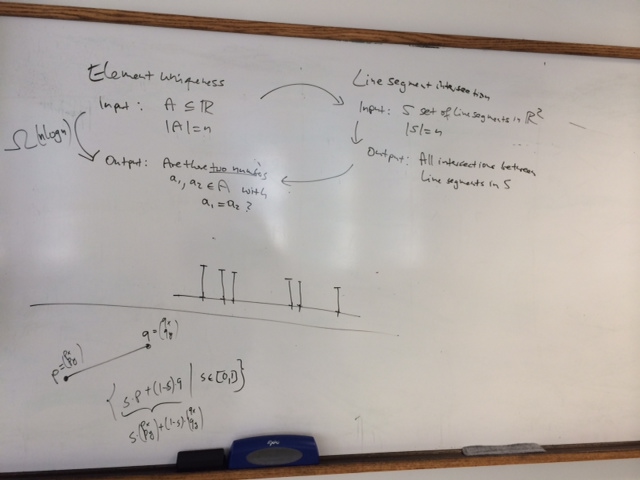 Element uniqueness
Input: A ⊆ ℝ
|A| = n
Ω(n log n)
Output: Are there two numbers
a₁, a₂ ∈ A with
a₁ = a₂ ?
Line segment intersection
Input: S set of line segments in ℝ²
|S| = n
Output: All intersections between
Line segments in S
q = (qₓ qᵧ)
p = (pₓ pᵧ)
{ s·p + (1-s)q | s ∈ [0,1] }
s·(pₓ pᵧ) + (1-s)·(qₓ qᵧ)